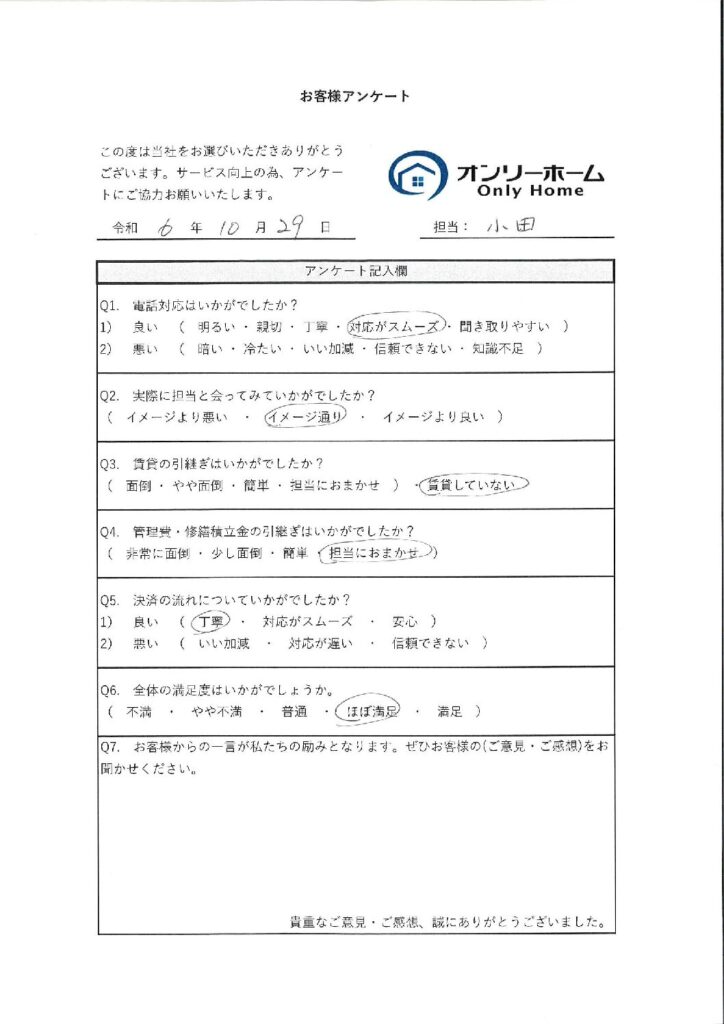 お客様アンケート
この度は当社をお選びいただきありがとう
ございます。サービス向上の為、アンケー
トにご協力お願いいたします。
オンリーホーム
Only Home
令和 6 年 10 月 29 日
担当： 小田
アンケート記入欄
Q1. 電話対応はいかがでしたか？
1) 良い （ 明るい ・ 親切 ・ 丁寧 ・ 対応がスムーズ ・ 聞き取りやすい ）
2) 悪い （ 暗い ・ 冷たい ・ いい加減 ・ 信頼できない ・ 知識不足 ）
Q2. 実際に担当と会ってみていかがでしたか？
（ イメージより悪い ・ イメージ通り ・ イメージより良い ）
Q3. 賃貸の引継ぎはいかがでしたか？
（ 面倒 ・ やや面倒 ・ 簡単 ・ 担当におまかせ ） ・ 賃貸していない
Q4. 管理費・修繕積立金の引継ぎはいかがでしたか？
（ 非常に面倒 ・ 少し面倒 ・ 簡単 ・ 担当におまかせ ）
Q5. 決済の流れについていかがでしたか？
1) 良い （ 丁寧 ・ 対応がスムーズ ・ 安心 ）
2) 悪い （ いい加減 ・ 対応が遅い ・ 信頼できない ）
Q6. 全体の満足度はいかがでしょうか。
（ 不満 ・ やや不満 ・ 普通 ・ ほぼ満足 ・ 満足 ）
Q7. お客様からの一言が私たちの励みとなります。ぜひお客様の(ご意見・ご感想)をお
聞かせください。
貴重なご意見・ご感想、誠にありがとうございました。